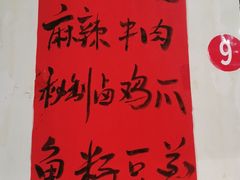 麻辣牛肉
9
秘制卤鸡爪
鱼籽豆